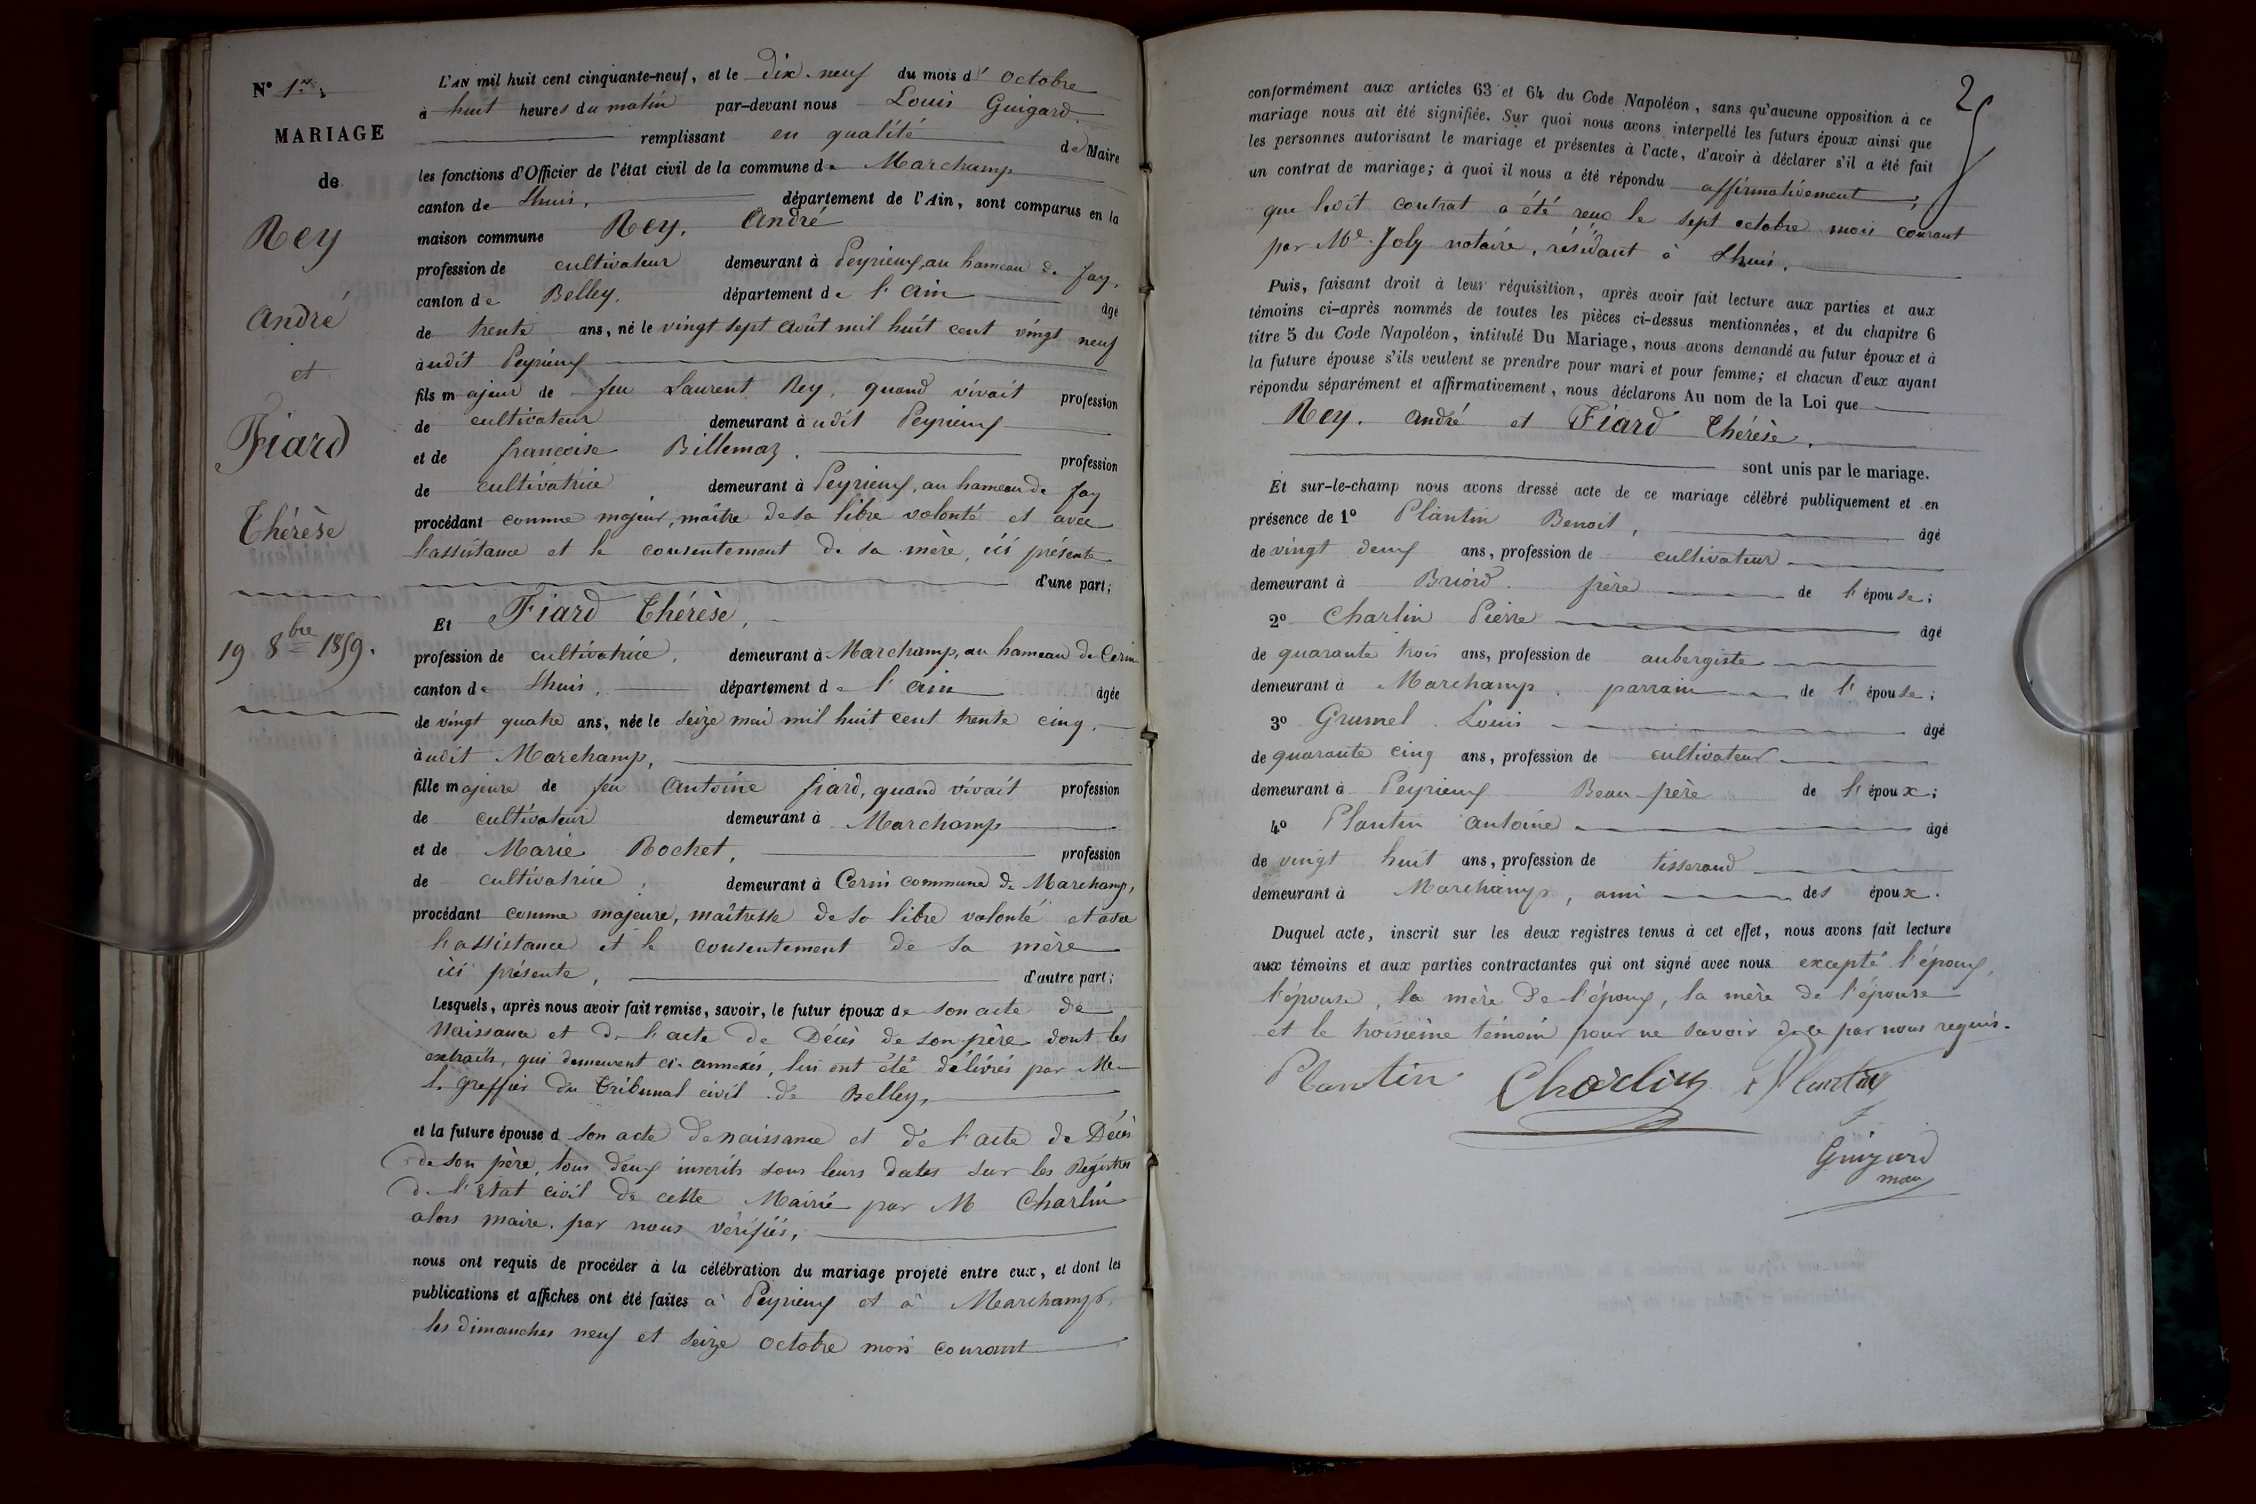 N° 1er.
MARIAGE
de
Rey
André
et
Fiard
Thérèse
19 8bre 1859.
L'AN mil huit cent cinquante-neuf, et le dix-neuf du mois d'octobre
à huit heures du matin par-devant nous Louis Guigard.
remplissant en qualité de Maire
les fonctions d'Officier de l'état civil de la commune de Marchamp
canton de Lhuis, département de l'Ain, sont comparus en la
maison commune Rey, André
profession de cultivateur demeurant à Peyrieux, au hameau de Fay,
canton de Belley, département de l'Ain âgé
de trente ans, né le vingt sept août mil huit cent vingt neuf
àudit Peyrieux
fils majeur de feu Laurent Rey, quand vivait profession
de cultivateur demeurant àudit Peyrieux
et de francoise Billemaz. profession
de cultivatrice demeurant à Peyrieux, au hameau de Fay
procédant comme majeur, maître de sa libre volonté et avec
l'assistance et le consentement de sa mère, ici présente
d'une part;
Et Fiard Thérèse,
profession de cultivatrice, demeurant à Marchamp, au hameau de Cerin
canton de Lhuis, département de l'ain âgée
de vingt quatre ans, née le seize mai mil huit cent trente cinq,
àudit Marchamp,
fille majeure de feu Antoine fiard, quand vivait profession
de cultivateur demeurant à Marchamp
et de Marie Rochet, profession
de cultivatrice, demeurant à Cerin commune de Marchamp,
procédant comme majeure, maîtresse de sa libre volonté et avec
l'assistance et le consentement de sa mère
ici présente, d'autre part;
Lesquels, après nous avoir fait remise, savoir, le futur époux de son acte de
Naissance et de l'acte de Décès de son père dont les
extraits, qui demeurent ci-annexés, lui ont été délivrés par Me
le greffier du tribunal civil de Belley,
et la future épouse d son acte de naissance et de l'acte de Décès
de son père, tous deux inscrits sous leurs dates sur les Régistres
de l'Etat civil de cette Mairie par M Charlin
alors maire, par nous vérifiés,
nous ont requis de procéder à la célébration du mariage projeté entre eux, et dont les
publications et affiches ont été faites à Peyrieux et à Marchamp,
les dimanches neuf et seize octobre mois courant
2
conformément aux articles 63 et 64 du Code Napoléon, sans qu'aucune opposition à ce
mariage nous ait été signifiée. Sur quoi nous avons interpellé les futurs époux ainsi que
les personnes autorisant le mariage et présentes à l'acte, d'avoir à déclarer s'il a été fait
un contrat de mariage; à quoi il nous a été répondu affirmativement,
que ledit contrat a été reçu le sept octobre mois courant
par Me Joly notaire, résidant à Lhuis.
Puis, faisant droit à leur réquisition, après avoir fait lecture aux parties et aux
témoins ci-après nommés de toutes les pièces ci-dessus mentionnées, et du chapitre 6
titre 5 du Code Napoléon, intitulé Du Mariage, nous avons demandé au futur époux et à
la future épouse s'ils veulent se prendre pour mari et pour femme; et chacun d'eux ayant
répondu séparément et affirmativement, nous déclarons Au nom de la Loi que
Rey. André et Fiard Thérèse.
sont unis par le mariage.
Et sur-le-champ nous avons dressé acte de ce mariage célébré publiquement et en
présence de 1° Plantin Benoit, âgé
de vingt deux ans, profession de cultivateur
demeurant à Briord. frère de l'épouse;
2° Charlin Pierre âgé
de quarante trois ans, profession de aubergiste
demeurant à Marchamp, parrain de l'épouse;
3° Grumel Louis âgé
de quarante cinq ans, profession de cultivateur
demeurant à Peyrieux Beau-frère de l'époux;
4° Plantin Antoine âgé
de vingt huit ans, profession de tisserand
demeurant à Marchamp, ami des époux.
Duquel acte, inscrit sur les deux registres tenus à cet effet, nous avons fait lecture
aux témoins et aux parties contractantes qui ont signé avec nous excepté l'époux,
l'épouse, la mère de l'époux, la mère de l'épouse
et le troisième témoin pour ne savoir de ce par nous requis.
Plantin Charlin Plantin
Guigard
maire